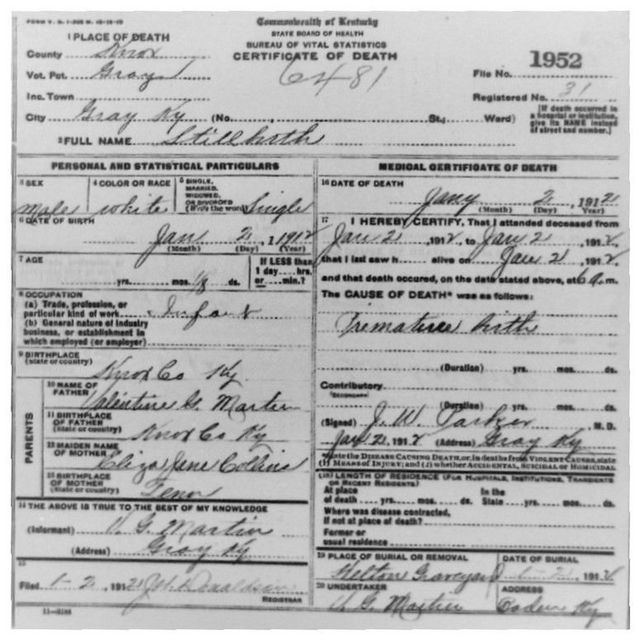 FORM V. S. 1-
Commonwealth of Kentucky
STATE BOARD OF HEALTH
BUREAU OF VITAL STATISTICS
CERTIFICATE OF DEATH
1 PLACE OF DEATH
County Knox
Vot. Pct. Gray 1
Inc. Town
City Gray Ky (No. St.; Ward)
6481
1952
File No.
Registered No. 31
[If death occurred in a hospital or institution, give its NAME instead of street and number.]
2 FULL NAME Stillbirth
PERSONAL AND STATISTICAL PARTICULARS
3 SEX male
4 COLOR OR RACE white
5 SINGLE, MARRIED, WIDOWED, OR DIVORCED (Write the word) Single
6 DATE OF BIRTH
Jan 2, 1912
(Month) (Day) (Year)
7 AGE
yrs. mos. 1/8 ds.
If LESS than 1 day ... hrs. or ... min.?
8 OCCUPATION
(a) Trade, profession, or particular kind of work Infant
(b) General nature of industry business, or establishment in which employed (or employer)
9 BIRTHPLACE
(State or country)
Knox Co Ky
PARENTS
10 NAME OF FATHER Valentine G. Martin
11 BIRTHPLACE OF FATHER (State or country) Knox Co Ky
12 MAIDEN NAME OF MOTHER Eliza Jane Collins
13 BIRTHPLACE OF MOTHER (State or country) Tenn
14 THE ABOVE IS TRUE TO THE BEST OF MY KNOWLEDGE
(Informant) V. G. Martin
(Address) Gray Ky
15
Filed 1-2, 1912 John Donaldson
REGISTRAR
11-3184
MEDICAL CERTIFICATE OF DEATH
16 DATE OF DEATH
Jany 2, 1912
(Month) (Day) (Year)
17 I HEREBY CERTIFY, That I attended deceased from
Jan 2, 1912, to Jan 2, 1912,
that I last saw h alive on Jan 2, 1912,
and that death occured, on the date stated above, at 6 a.m.
The CAUSE OF DEATH* was as follows:
Premature birth
(Duration) yrs. mos. ds.
Contributory
(SECONDARY)
(Duration) yrs. mos. ds.
(Signed) J. W. Parker M. D.
Jan 2, 1912 (Address) Gray Ky
*State the DISEASE CAUSING DEATH, or, in deaths from VIOLENT CAUSES, state (1) MEANS OF INJURY; and (2) whether ACCIDENTAL, SUICIDAL or HOMICIDAL
18 LENGTH OF RESIDENCE (FOR HOSPITALS, INSTITUTIONS, TRANSIENTS OR RECENT RESIDENTS)
At place of death yrs. mos. ds. In the State yrs. mos. ds.
Where was disease contracted, If not at place of death?
Former or usual residence
19 PLACE OF BURIAL OR REMOVAL
Helton Graveyard
DATE OF BURIAL
1-2, 1912
20 UNDERTAKER
V. G. Martin
ADDRESS
Ky